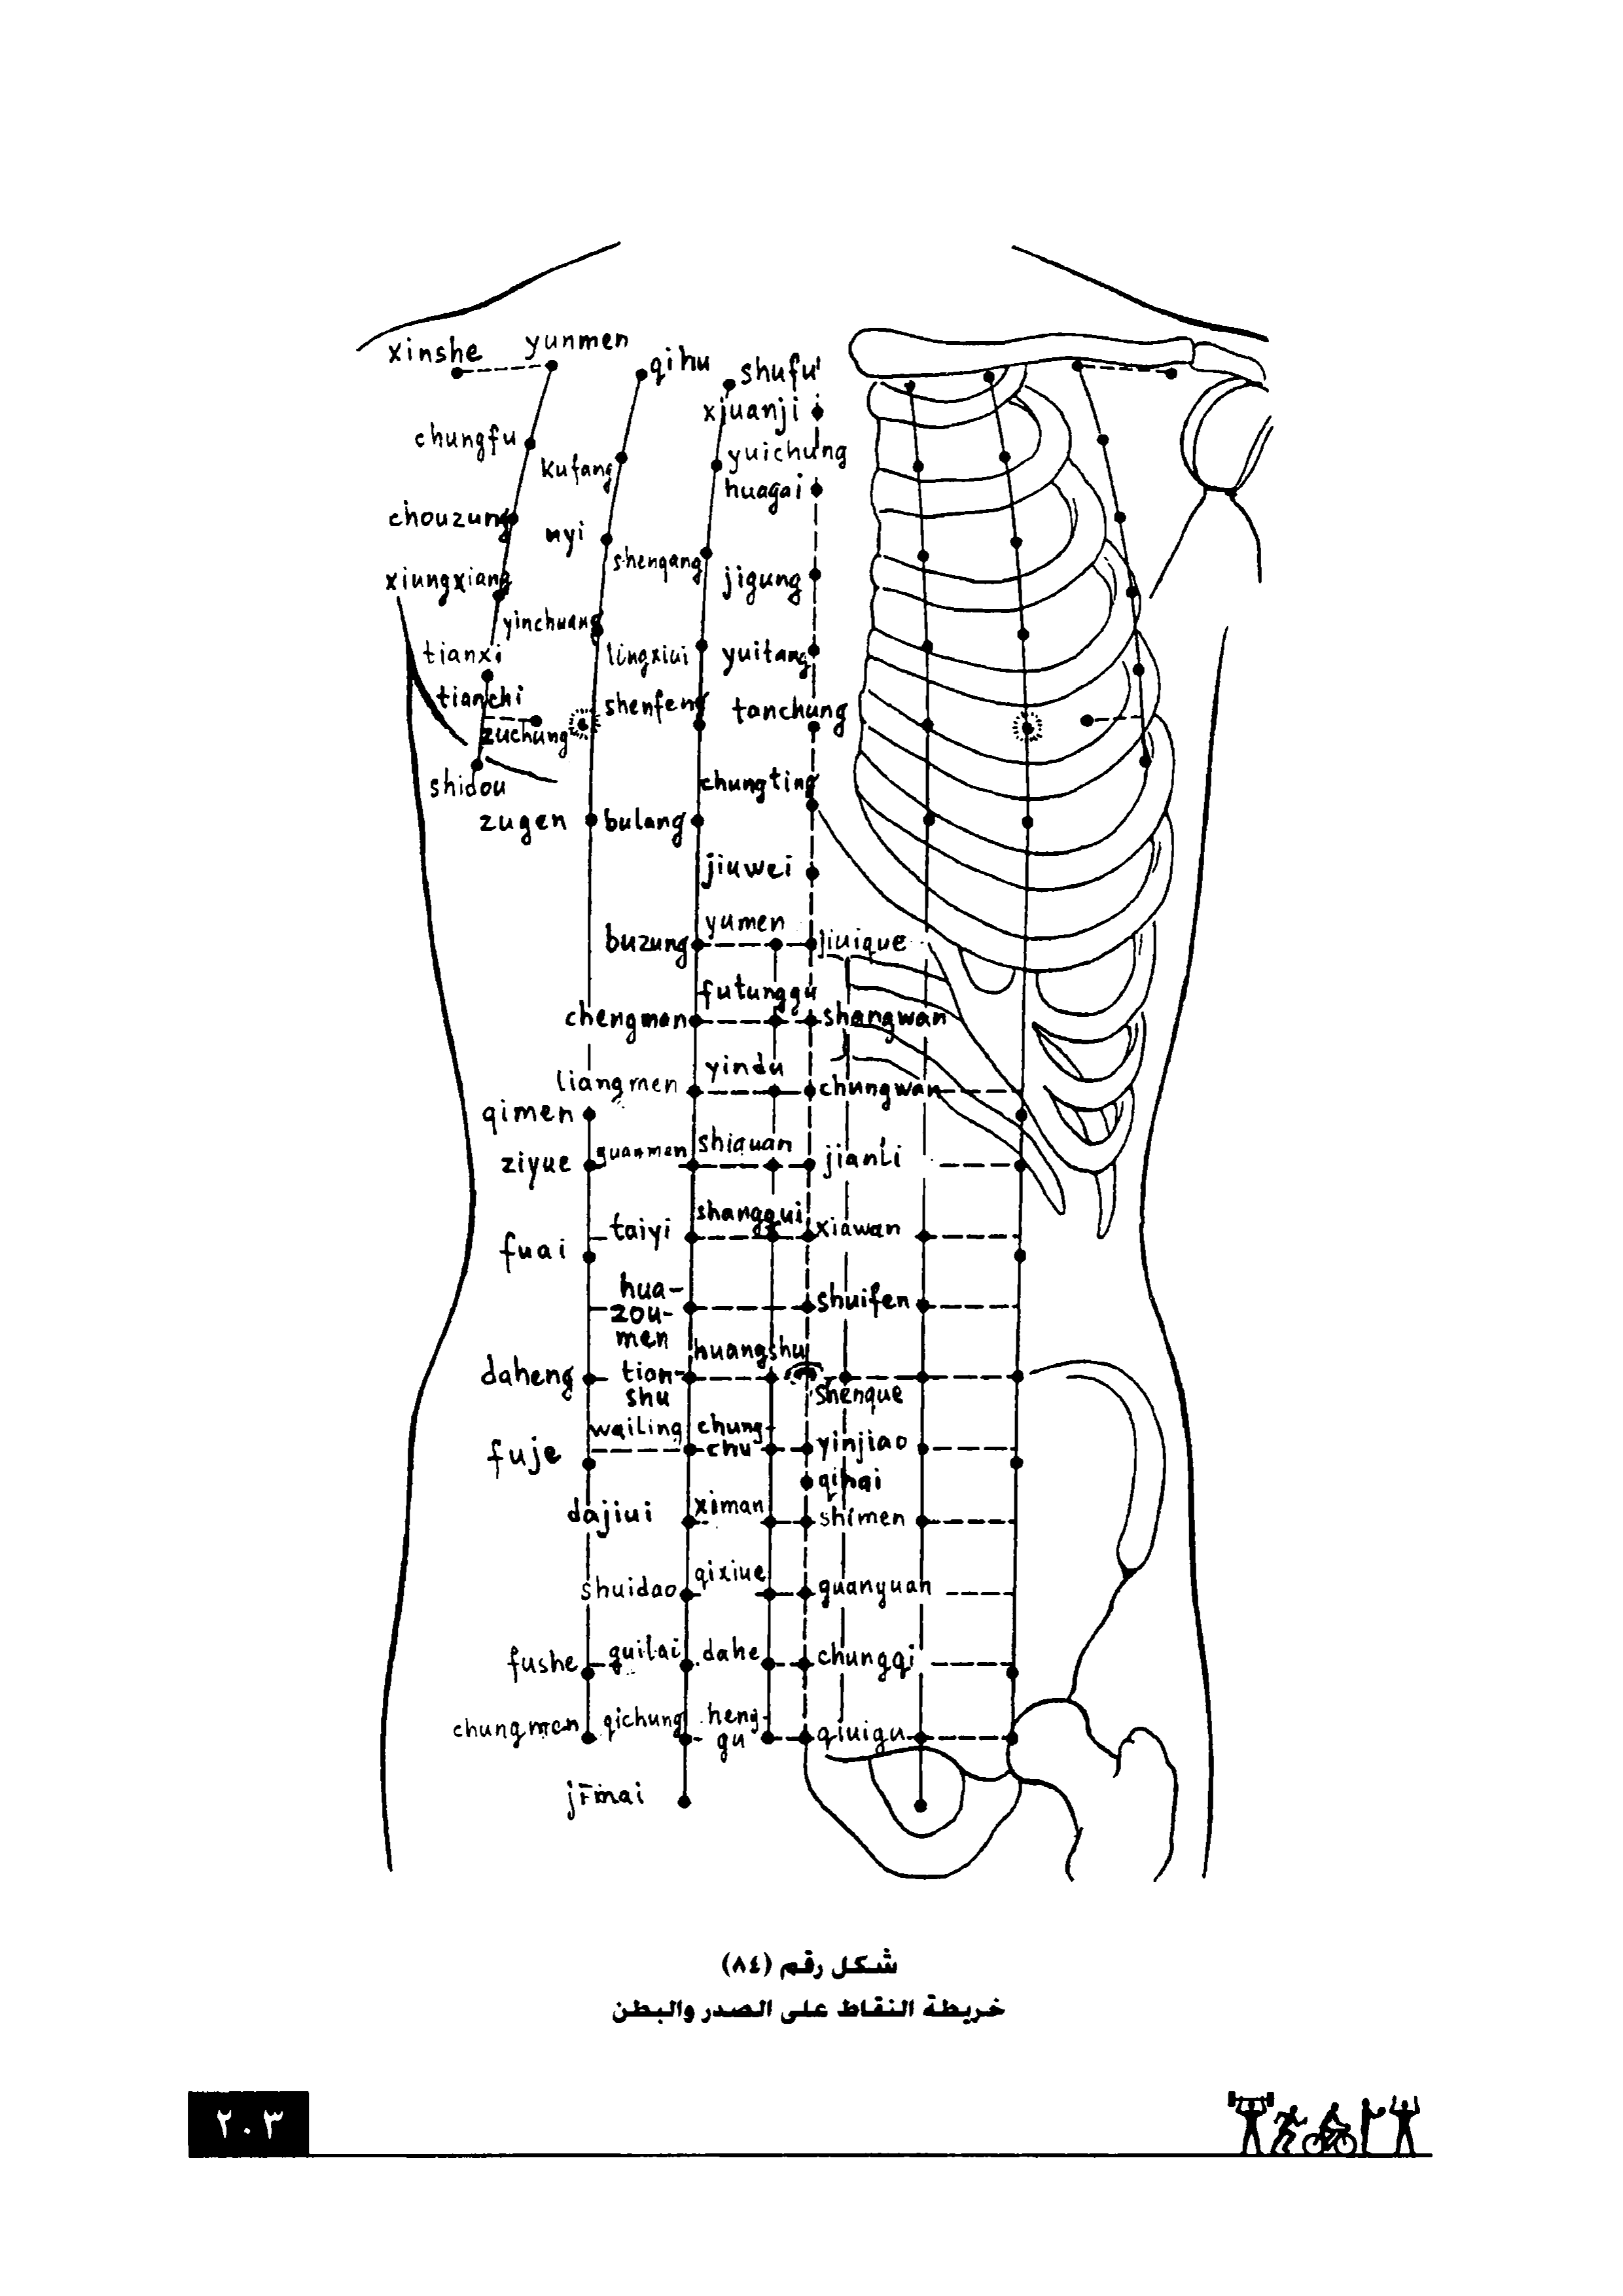 xinshe
yunmen
qihu
shufu
xjuanji
chungfu
kufang
yuichung
huagai
chouzung
shengang
jigung
xiungxiang
yinchuang
tianxi
lingxiui
yuitang
tianchi
shenfeng
tanchung
zuchung
shidou
chungting
zugen
bulang
jiuwei
yumen
buzung
jiuique
futunggu
chengman
shangwan
yindu
liangmen
chungwan
qimen
ziyue
guanmen
shiguan
jianli
shangqui
taiyi
xiawan
fuai
hua-
zou-
men
shuifen
huangshu
daheng
tian-
shu
shenque
wailing
chung-
chu
yinjiao
fuje
qihai
dajiui
ximan
shimen
shuidao
qixiue
guanyuan
fushe
guilai
dahe
chungqi
chungmen
qichung
heng-
gu
qiuigu
jimai
شكل رقم (٨٤)
خريطة النقاط على الصدر والبطن
٢٠٣